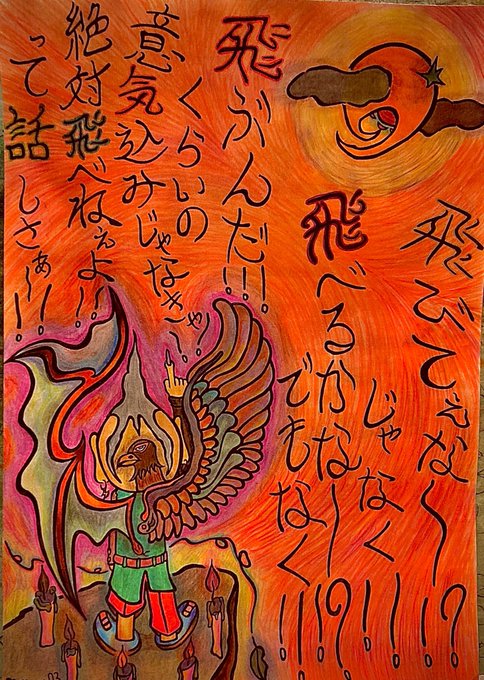 飛びてぇな〜!?
じゃなく!!
飛べるかな〜!?
でもなく!!
飛ぶんだ!!!
くらいの
意気込みじゃなきゃ〜!
絶対飛べねぇよ!!
って話しさぁ〜!!